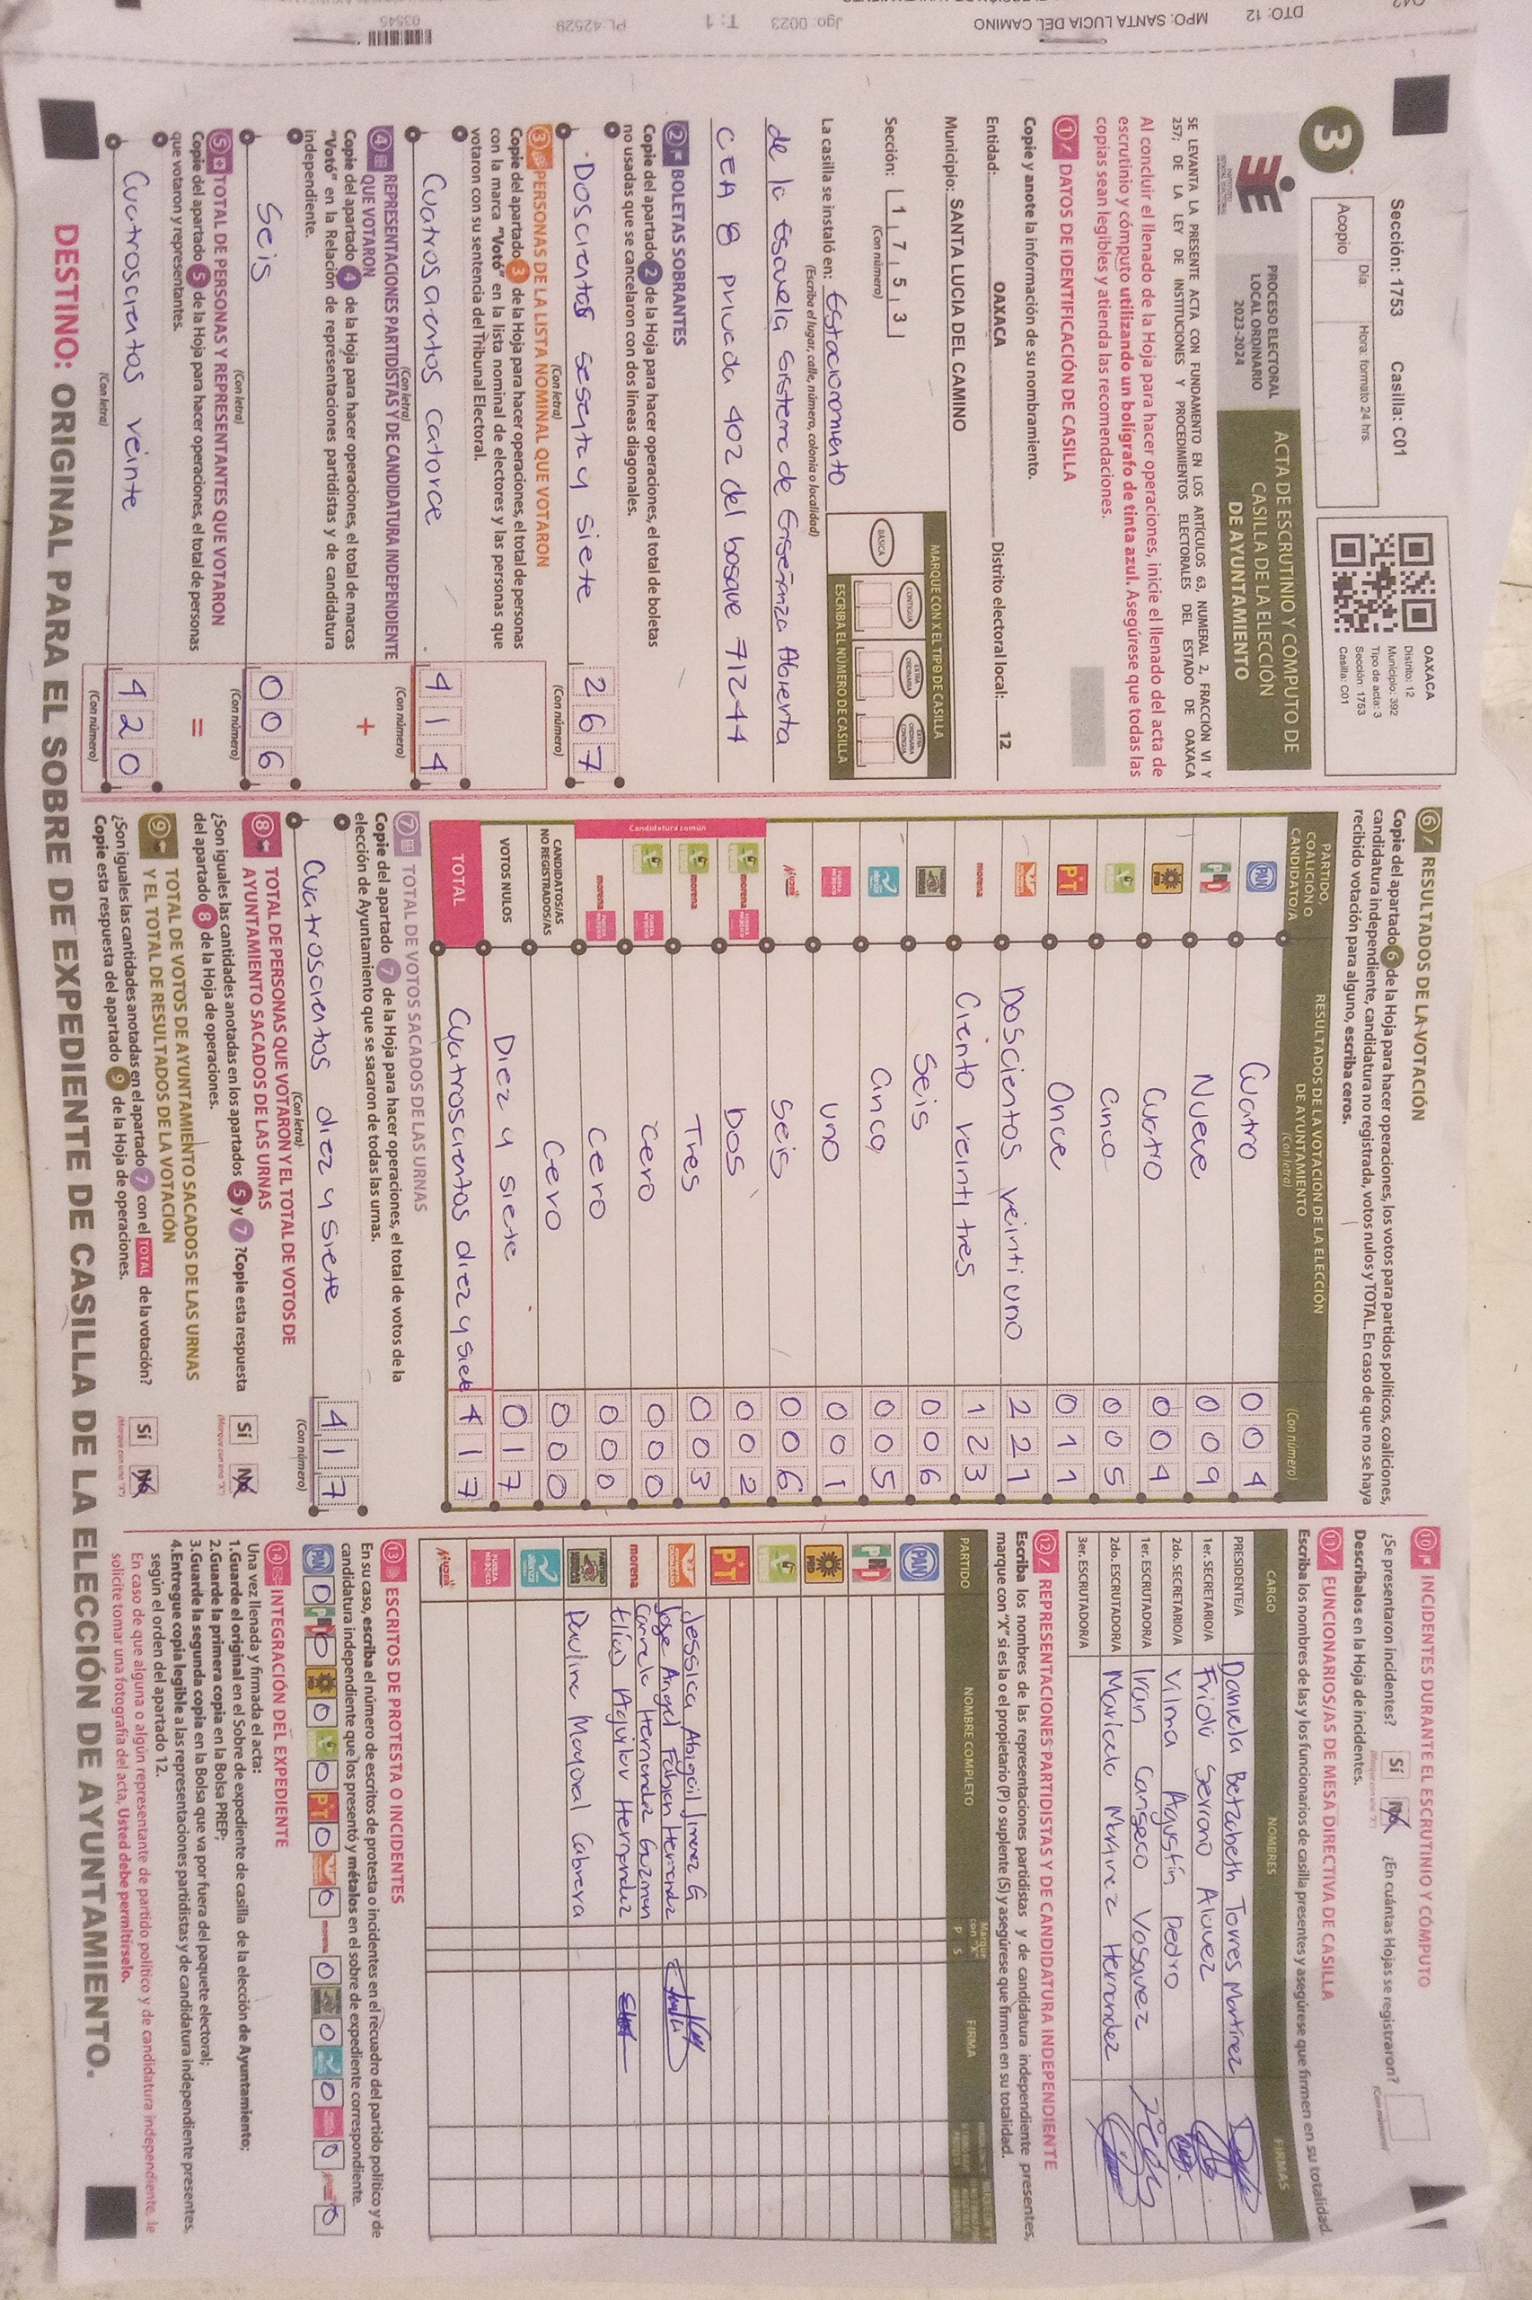 Sección: 1753 Casilla: C01
Acopio
Día:
Hora: formato 24 hrs.
OAXACA
Distrito: 12
Municipio: 392
Tipo de acta: 3
Sección: 1753
Casilla: C01
3
PROCESO ELECTORAL
LOCAL ORDINARIO
2023-2024
ACTA DE ESCRUTINIO Y CÓMPUTO DE
CASILLA DE LA ELECCIÓN
DE AYUNTAMIENTO
SE LEVANTA LA PRESENTE ACTA CON FUNDAMENTO EN LOS ARTÍCULOS 63, NUMERAL 2, FRACCIÓN VI Y
257; DE LA LEY DE INSTITUCIONES Y PROCEDIMIENTOS ELECTORALES DEL ESTADO DE OAXACA
Al concluir el llenado de la Hoja para hacer operaciones, inicie el llenado del acta de
escrutinio y cómputo utilizando un bolígrafo de tinta azul. Asegúrese que todas las
copias sean legibles y atienda las recomendaciones.
1 DATOS DE IDENTIFICACIÓN DE CASILLA
Copie y anote la información de su nombramiento.
Entidad: OAXACA Distrito electoral local: 12
Municipio: SANTA LUCIA DEL CAMINO
Sección: 1 7 5 3
(Con número)
MARQUE CON X EL TIPO DE CASILLA
BÁSICA CONTIGUA EXTRAORDINARIA EXTRAORDINARIA CONTIGUA
ESCRIBA EL NÚMERO DE CASILLA
La casilla se instaló en: Estacionamiento
(Escriba el lugar, calle, número, colonia o localidad)
de la Escuela Sistema de Enseñanza Abierta
CEA 8 privada 402 del bosque 71244
2 BOLETAS SOBRANTES
Copie del apartado 2 de la Hoja para hacer operaciones, el total de boletas
no usadas que se cancelaron con dos líneas diagonales.
Doscientos sesenta y siete 2 6 7
(Con letra) (Con número)
3 PERSONAS DE LA LISTA NOMINAL QUE VOTARON
Copie del apartado 3 de la Hoja para hacer operaciones, el total de personas
con la marca "Votó" en la lista nominal de electores y las personas que
votaron con su sentencia del Tribunal Electoral.
Cuatrosientos catorce 4 1 4
(Con letra) (Con número)
4 REPRESENTACIONES PARTIDISTAS Y DE CANDIDATURA INDEPENDIENTE
QUE VOTARON
Copie del apartado 4 de la Hoja para hacer operaciones, el total de marcas
"Votó" en la Relación de representaciones partidistas y de candidatura
independiente.
+
Seis 0 0 6
(Con letra) (Con número)
5 TOTAL DE PERSONAS Y REPRESENTANTES QUE VOTARON
Copie del apartado 5 de la Hoja para hacer operaciones, el total de personas
que votaron y representantes.
=
Cuatroscientos veinte 4 2 0
(Con letra) (Con número)
6 RESULTADOS DE LA VOTACIÓN
Copie del apartado 6 de la Hoja para hacer operaciones, los votos para partidos políticos, coaliciones,
candidatura independiente, candidatura no registrada, votos nulos y TOTAL. En caso de que no se haya
recibido votación para alguno, escriba ceros.
PARTIDO, COALICIÓN O CANDIDATO/A
RESULTADOS DE LA VOTACIÓN DE LA ELECCIÓN
DE AYUNTAMIENTO
(Con letra) (Con número)
PAN Cuatro 0 0 4
PRI Nueve 0 0 9
PRD Cuatro 0 0 4
Cinco 0 0 5
PT Once 0 1 1
Doscientos veintiuno 2 2 1
morena Ciento veintitres 1 2 3
Seis 0 0 6
Cinco 0 0 5
Uno 0 0 1
Seis 0 0 6
Candidatura común
morena Dos 0 0 2
morena Tres 0 0 3
Cero 0 0 0
morena Cero 0 0 0
CANDIDATOS/AS NO REGISTRADOS/AS Cero 0 0 0
VOTOS NULOS Diez y siete 0 1 7
TOTAL Cuatroscientos diez y siete 4 1 7
7 TOTAL DE VOTOS SACADOS DE LAS URNAS
Copie del apartado 7 de la Hoja para hacer operaciones, el total de votos de la
elección de Ayuntamiento que se sacaron de todas las urnas.
Cuatroscientos diez y siete 4 1 7
(Con letra) (Con número)
8 TOTAL DE PERSONAS QUE VOTARON Y EL TOTAL DE VOTOS DE
AYUNTAMIENTO SACADOS DE LAS URNAS
¿Son iguales las cantidades anotadas en los apartados 5 y 7 ?Copie esta respuesta
del apartado 8 de la Hoja de operaciones.
Sí No
9 TOTAL DE VOTOS DE AYUNTAMIENTO SACADOS DE LAS URNAS
Y EL TOTAL DE RESULTADOS DE LA VOTACIÓN
¿Son iguales las cantidades anotadas en el apartado 7 con el TOTAL de la votación?
Copie esta respuesta del apartado 9 de la Hoja de operaciones.
Sí No
10 INCIDENTES DURANTE EL ESCRUTINIO Y CÓMPUTO
¿Se presentaron incidentes? Sí No ¿En cuántas Hojas se registraron?
Descríbalos en la Hoja de incidentes.
11 FUNCIONARIOS/AS DE MESA DIRECTIVA DE CASILLA
Escriba los nombres de las y los funcionarios de casilla presentes y asegúrese que firmen en su totalidad.
CARGO NOMBRES FIRMAS
PRESIDENTE/A Daniela Betzabeth Torres Martinez
1er. SECRETARIO/A Serrano Alavez
2do. SECRETARIO/A Vilma Agustín Pedro
1er. ESCRUTADOR/A Iran Canseco Vasquez
2do. ESCRUTADOR/A Maricela Martinez Hernandez
3er. ESCRUTADOR/A
12 REPRESENTACIONES PARTIDISTAS Y DE CANDIDATURA INDEPENDIENTE
Escriba los nombres de las representaciones partidistas y de candidatura independiente presentes,
marque con "X" si es la o el propietario (P) o suplente (S) y asegúrese que firmen en su totalidad.
PARTIDO NOMBRE COMPLETO Marque con "X" P S FIRMA
PAN
PRI
PRD
PT
Jessica Abigail Jimenez G
Jose Angel Fabian Hernandez
morena Hernandez Guzman
Elias Aguilar Hernandez
Pauline Mayoral Cabrera
13 ESCRITOS DE PROTESTA O INCIDENTES
En su caso, escriba el número de escritos de protesta o incidentes en el recuadro del partido político y de
candidatura independiente que los presentó y métalos en el sobre de expediente correspondiente.
PAN 0 PRI 0 PRD 0 0 PT 0 0 morena 0 0 0 0 0
14 INTEGRACIÓN DEL EXPEDIENTE
Una vez llenada y firmada el acta:
1.Guarde el original en el Sobre de expediente de casilla de la elección de Ayuntamiento;
2.Guarde la primera copia en la Bolsa PREP;
3.Guarde la segunda copia en la Bolsa que va por fuera del paquete electoral;
4.Entregue copia legible a las representaciones partidistas y de candidatura independiente presentes,
según el orden del apartado 12.
En caso de que alguna o algún representante de partido político y de candidatura independiente, le
solicite tomar una fotografía del acta, Usted debe permitírselo.
DESTINO: ORIGINAL PARA EL SOBRE DE EXPEDIENTE DE CASILLA DE LA ELECCIÓN DE AYUNTAMIENTO.
DTO: 12 MPO: SANTA LUCIA DEL CAMINO Jgo: 0023 T: 1 PL:42529
03545